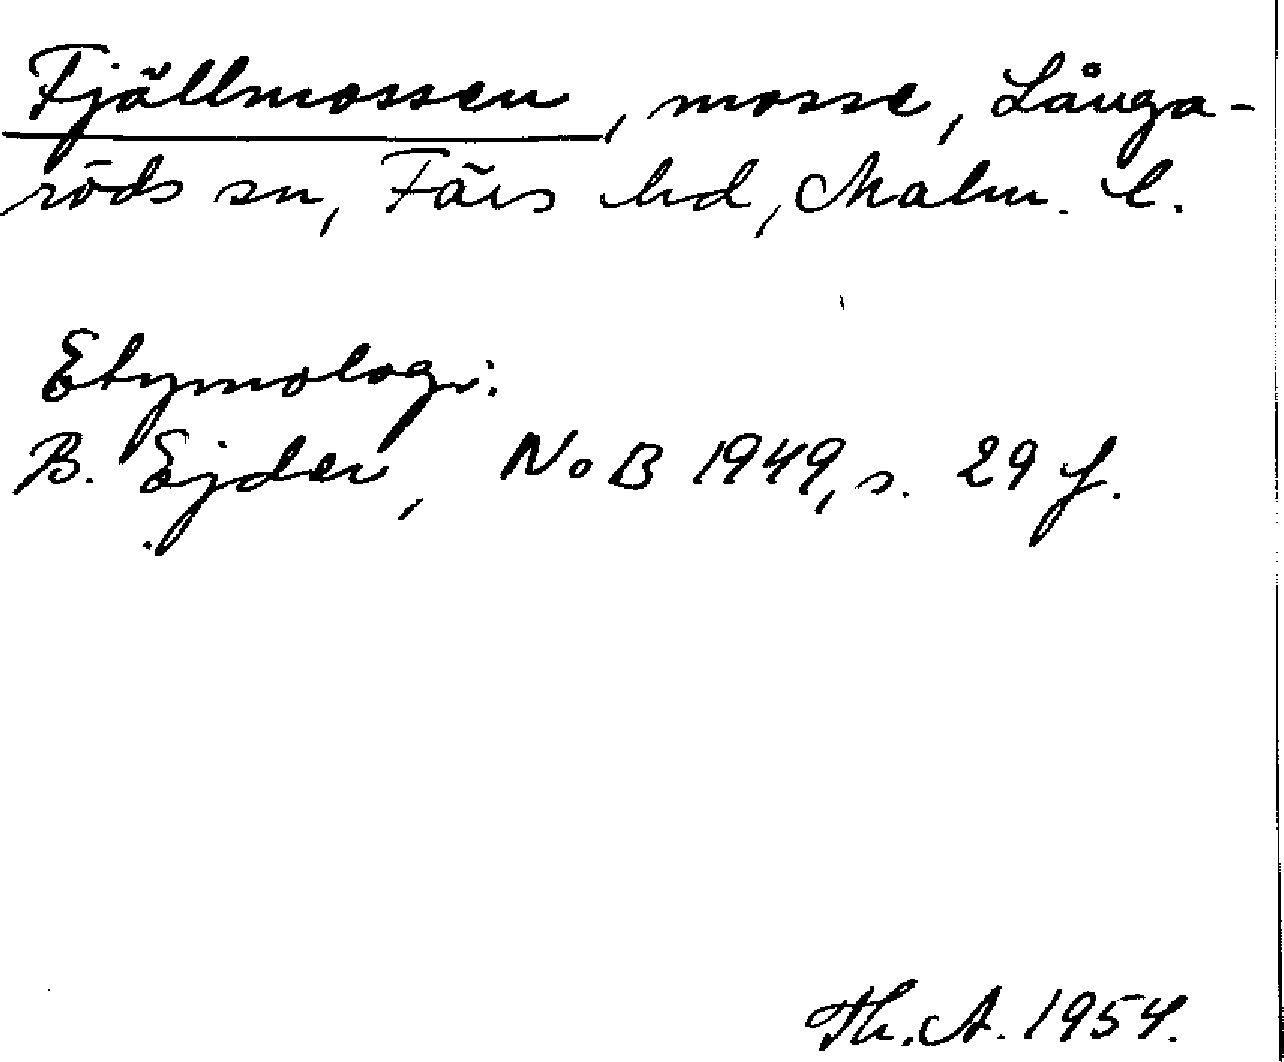 Fjällmossen, mosse, Långa-
röds sn, Färs hd, Malm. l.
Etymologi:
B. Ejder, NoB 1949, s. 29 f.
Th. A. 1954.